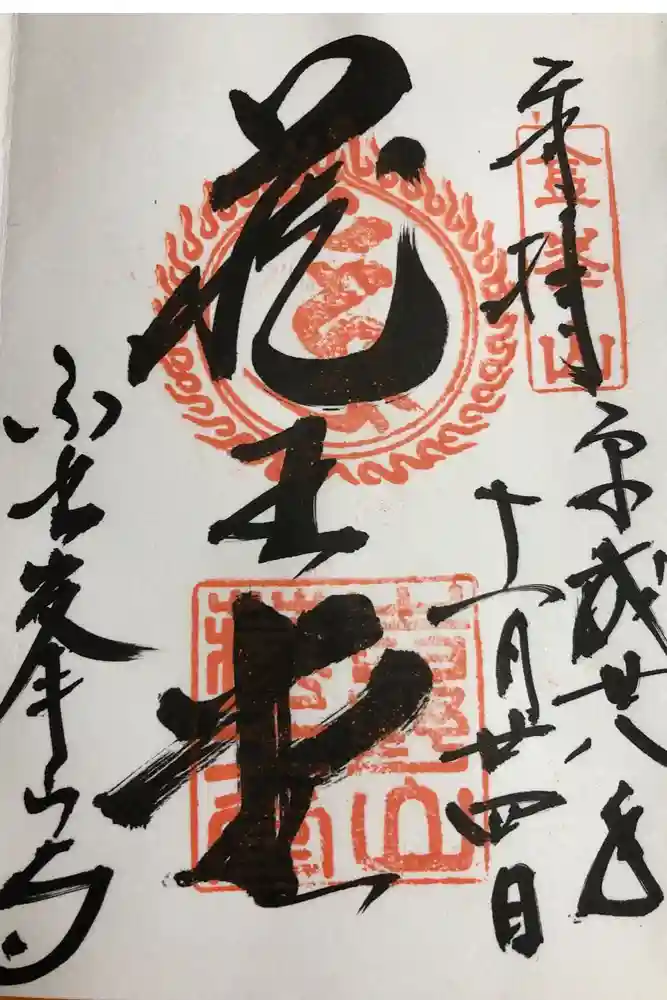 奉拝
金峯山
平成廿八年
十一月廿四日
蔵王堂
峯山寺